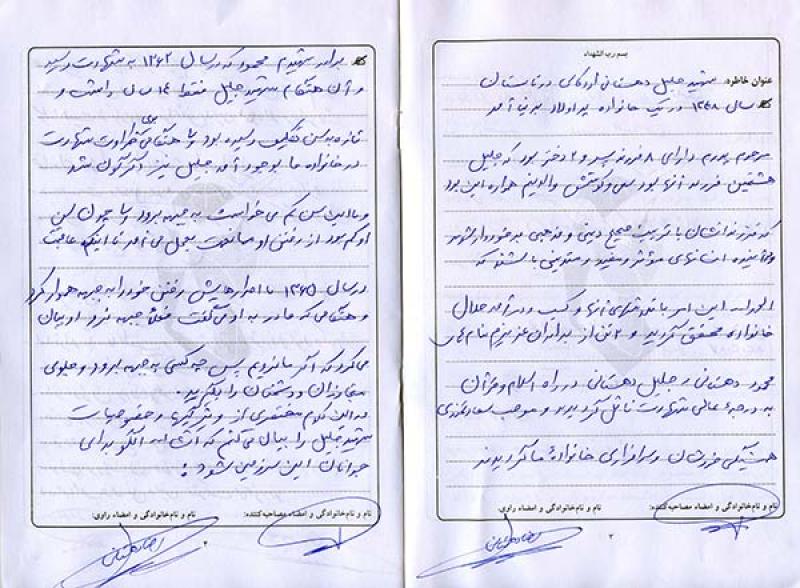 بسم رب الشهداء
عنوان خاطره: شهید جلیل دهستانی اردکانی در تابستان
سال ۱۳۴۸ در یک خانواده پر اولاد بدنیا آمد
مرحوم پدرم دارای ۸ فرزند پسر و ۲ دختر بود که جلیل
هشتمین فرزند آنها بود سعی و کوشش والدینم همواره این بود
که فرزندانشان با تربیت صحیح دینی و مذهبی برخوردار شوند
و در آینده انسانهای مؤثر و مفید و متدینی باشند که
الحمدالله این امر با آنها و کسب درآمد حلال
خانواده محقق گردید و ۲ تن از برادران عزیزم بنام های
محمود دهستانی و جلیل دهستانی در راه اسلام و قرآن
به درجه عالی شهادت نائل گردیدند و موجب سعادتمندی
همیشگی خودشان و سرافرازی خانواده ما گردیدند
نام و نام خانوادگی و امضاء مصاحبه کننده:
نام و نام خانوادگی و امضاء راوی:
۲
برادر شهیدم محمود که در سال ۱۳۶۲ به شهادت رسید
در آن هنگام شهید جلیل فقط ۱۴ سال داشت و
تازه به سن تکلیف رسیده بود و با شهادت
در خانواده ما بوجود آمد جلیل نیز دگرگون شد
و با این سن کم می خواست به جبهه برود و با چون سن
او کم بود از رفتن او ممانعت بعمل می آمد تا اینکه عاقبت
در سال ۱۳۶۵ با اصرارهایش رفتن خود را به جبهه هموار کرد
و هنگامی که مادر به او می گفت فعلا جبهه نرو او بیان
می کرد که اگر ما نرویم پس چه کسی به جبهه برود و جلوی
متجاوزان و دشمنان را بگیرد.
در این کلام مختصری از ویژگیها و خصوصیات
شهید جلیل را بیان می کنم که انشاءالله الگو برای
جوانان این سرزمین شود:
نام و نام خانوادگی و امضاء مصاحبه کننده:
نام و نام خانوادگی و امضاء راوی: